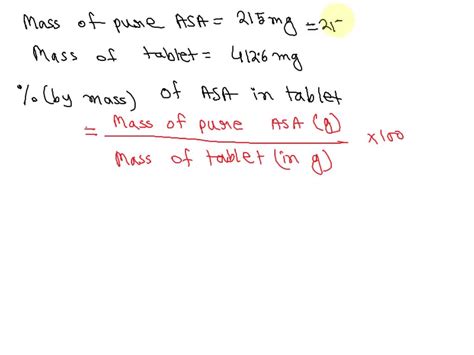 Mass of pure ASA = 215 mg = 215
Mass of tablet = 412.6 mg
% (by mass) of ASA in tablet
= Mass of pure ASA (g)
Mass of tablet (in g)
× 100